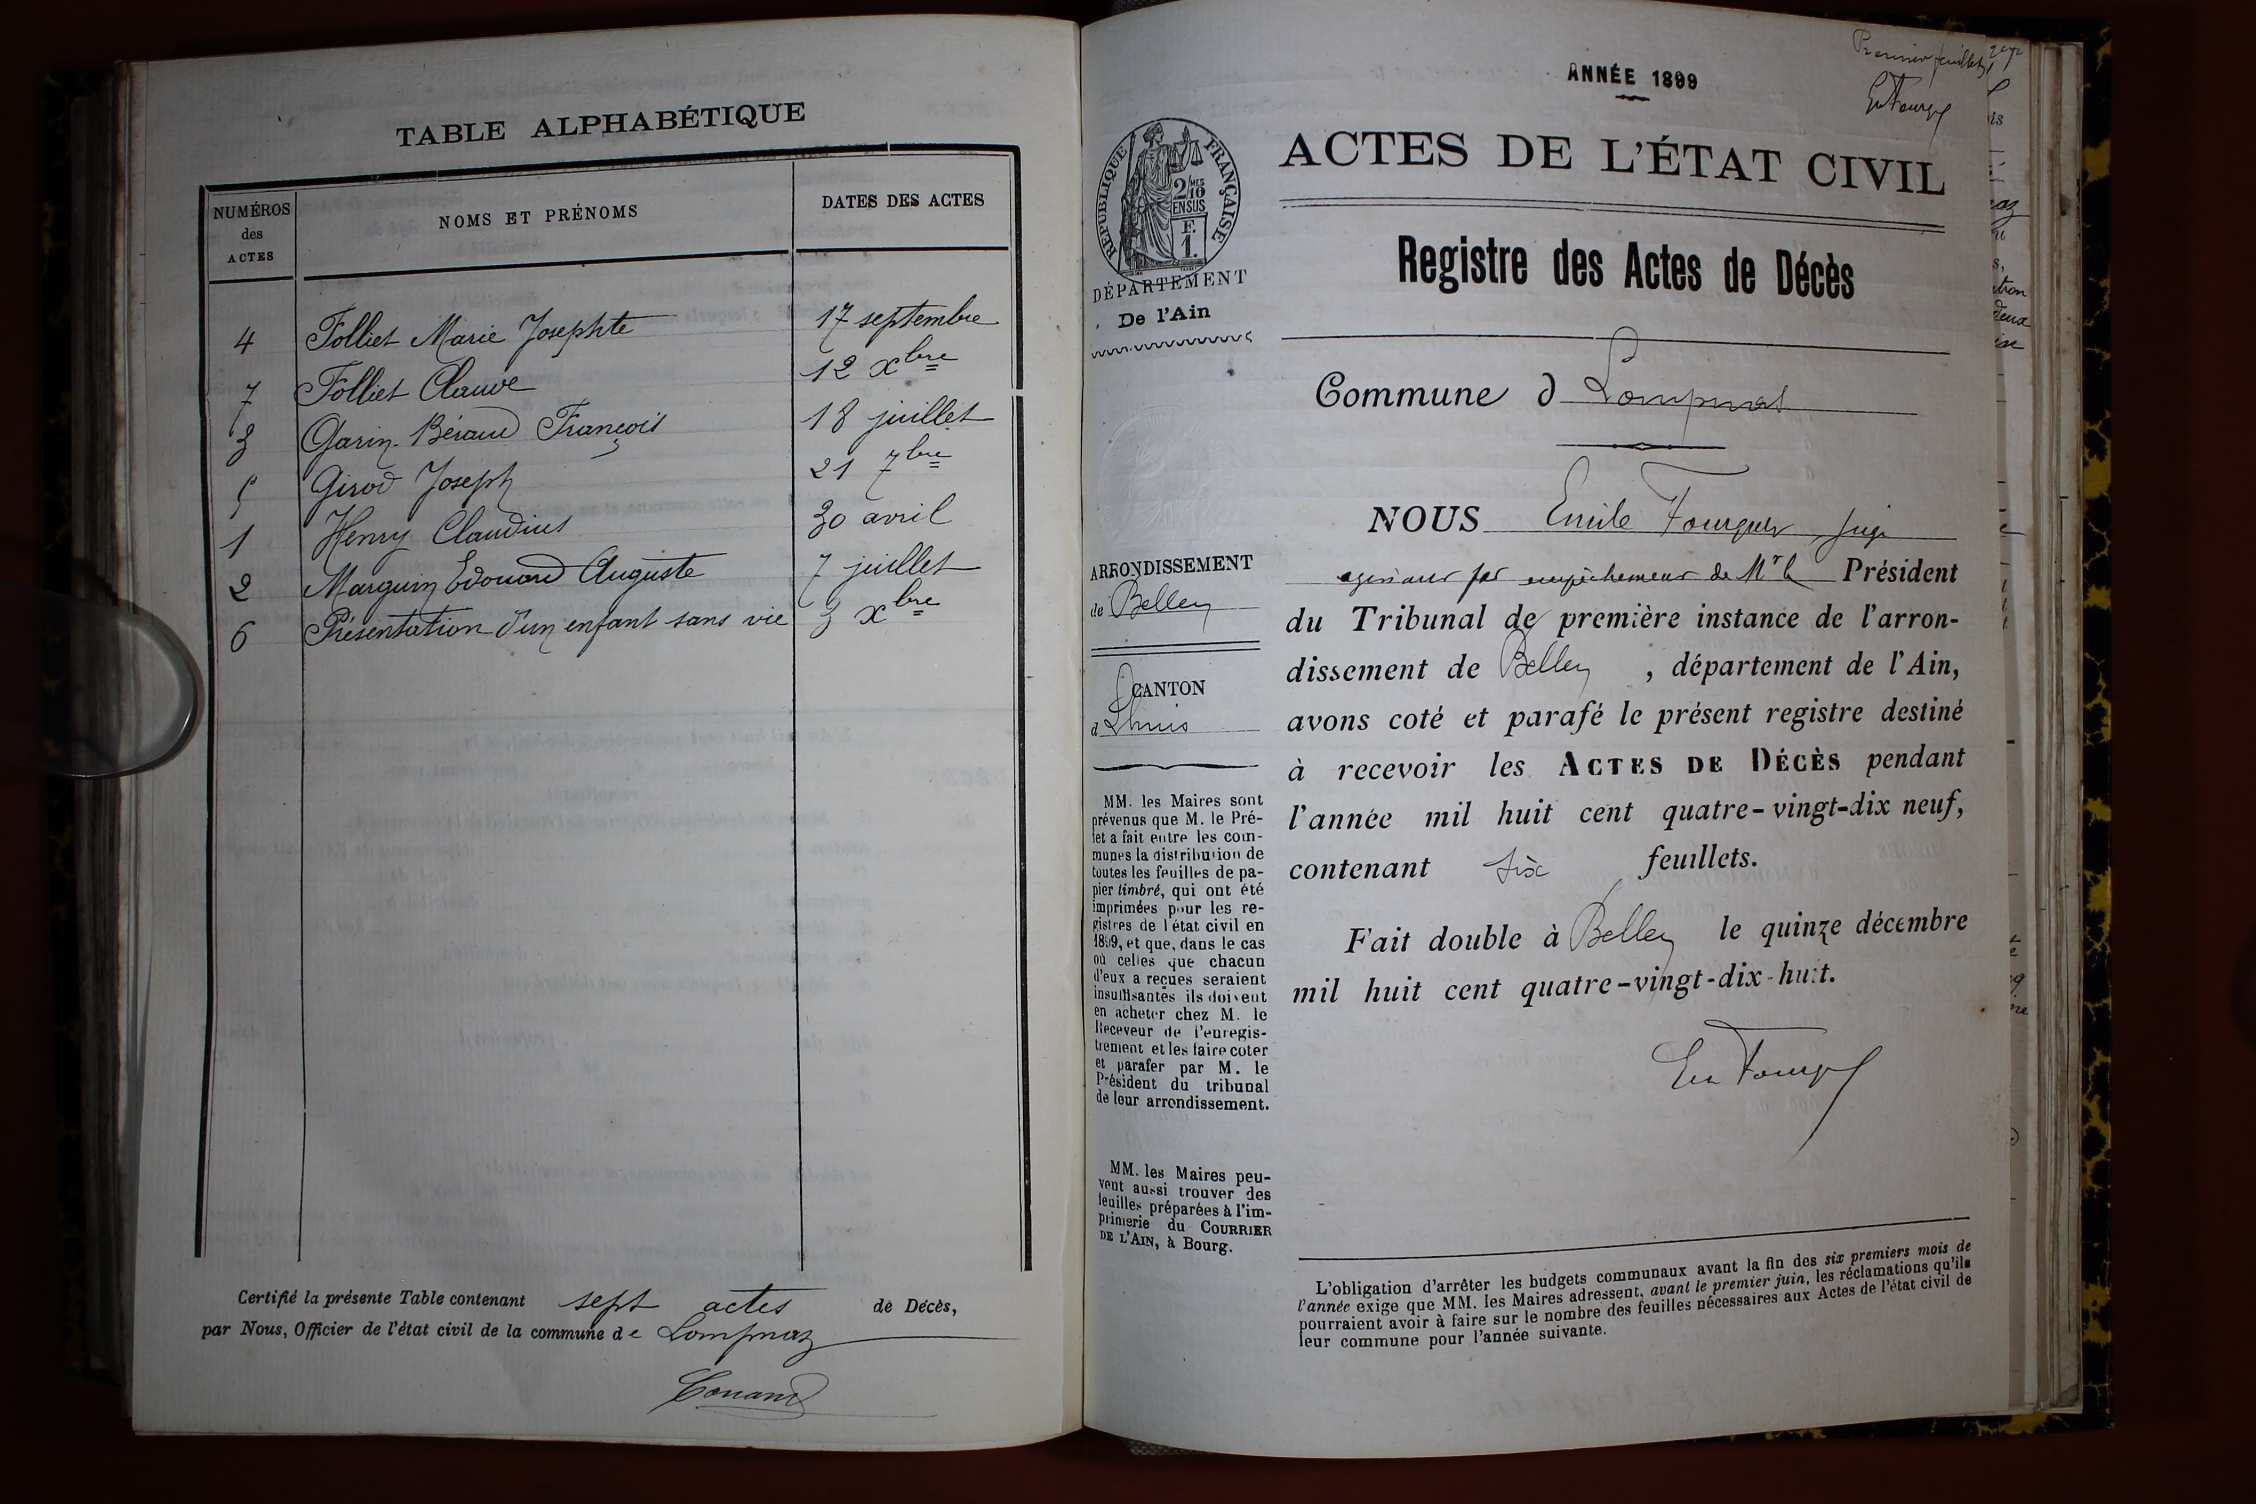 TABLE ALPHABÉTIQUE
NUMÉROS des ACTES
NOMS ET PRÉNOMS
DATES DES ACTES
4 Folliet Marie Josephte 17 septembre
7 Folliet Clauve 12 Xbre
3 Garin-Béraud François 18 juillet
5 Girod Joseph 21 7bre
1 Henry Claudius 30 avril
2 Marguin Edouard Auguste 7 juillet
6 Présentation d'un enfant sans vie 3 Xbre
Certifié la présente Table contenant sept actes de Décès,
par Nous, Officier de l'état civil de la commune de Lompnaz
Conand
Premier feuillet
ANNÉE 1899
ACTES DE L'ÉTAT CIVIL
RÉPUBLIQUE FRANÇAISE
2/10 MES
EN SUS
F.
1.
DÉPARTEMENT
De l'Ain
Registre des Actes de Décès
Commune d Lompnas
ARRONDISSEMENT
de Belley
CANTON
d Lhuis
MM. les Maires sont
prévenus que M. le Pré-
fet a fait entre les com-
munes la distribution de
toutes les feuilles de pa-
pier timbré, qui ont été
imprimées pour les re-
gistres de l'état civil en
1899, et que, dans le cas
où celles que chacun
d'eux a reçues seraient
insuffisantes ils doivent
en acheter chez M. le
Receveur de l'enregis-
trement et les faire coter
et parafer par M. le
Président du tribunal
de leur arrondissement.
MM. les Maires peu-
vent aussi trouver des
feuilles préparées à l'im-
primerie du COURRIER
DE L'AIN, à Bourg.
NOUS Emile Fourquet, juge
par empêchement de Mr le Président
du Tribunal de première instance de l'arron-
dissement de Belley, département de l'Ain,
avons coté et parafé le présent registre destiné
à recevoir les ACTES DE DÉCÈS pendant
l'année mil huit cent quatre-vingt-dix neuf,
contenant six feuillets.
Fait double à Belley le quinze décembre
mil huit cent quatre-vingt-dix-huit.
L'obligation d'arrêter les budgets communaux avant la fin des six premiers mois de
l'année exige que MM. les Maires adressent, avant le premier juin, les réclamations qu'ils
pourraient avoir à faire sur le nombre des feuilles nécessaires aux Actes de l'état civil de
leur commune pour l'année suivante.